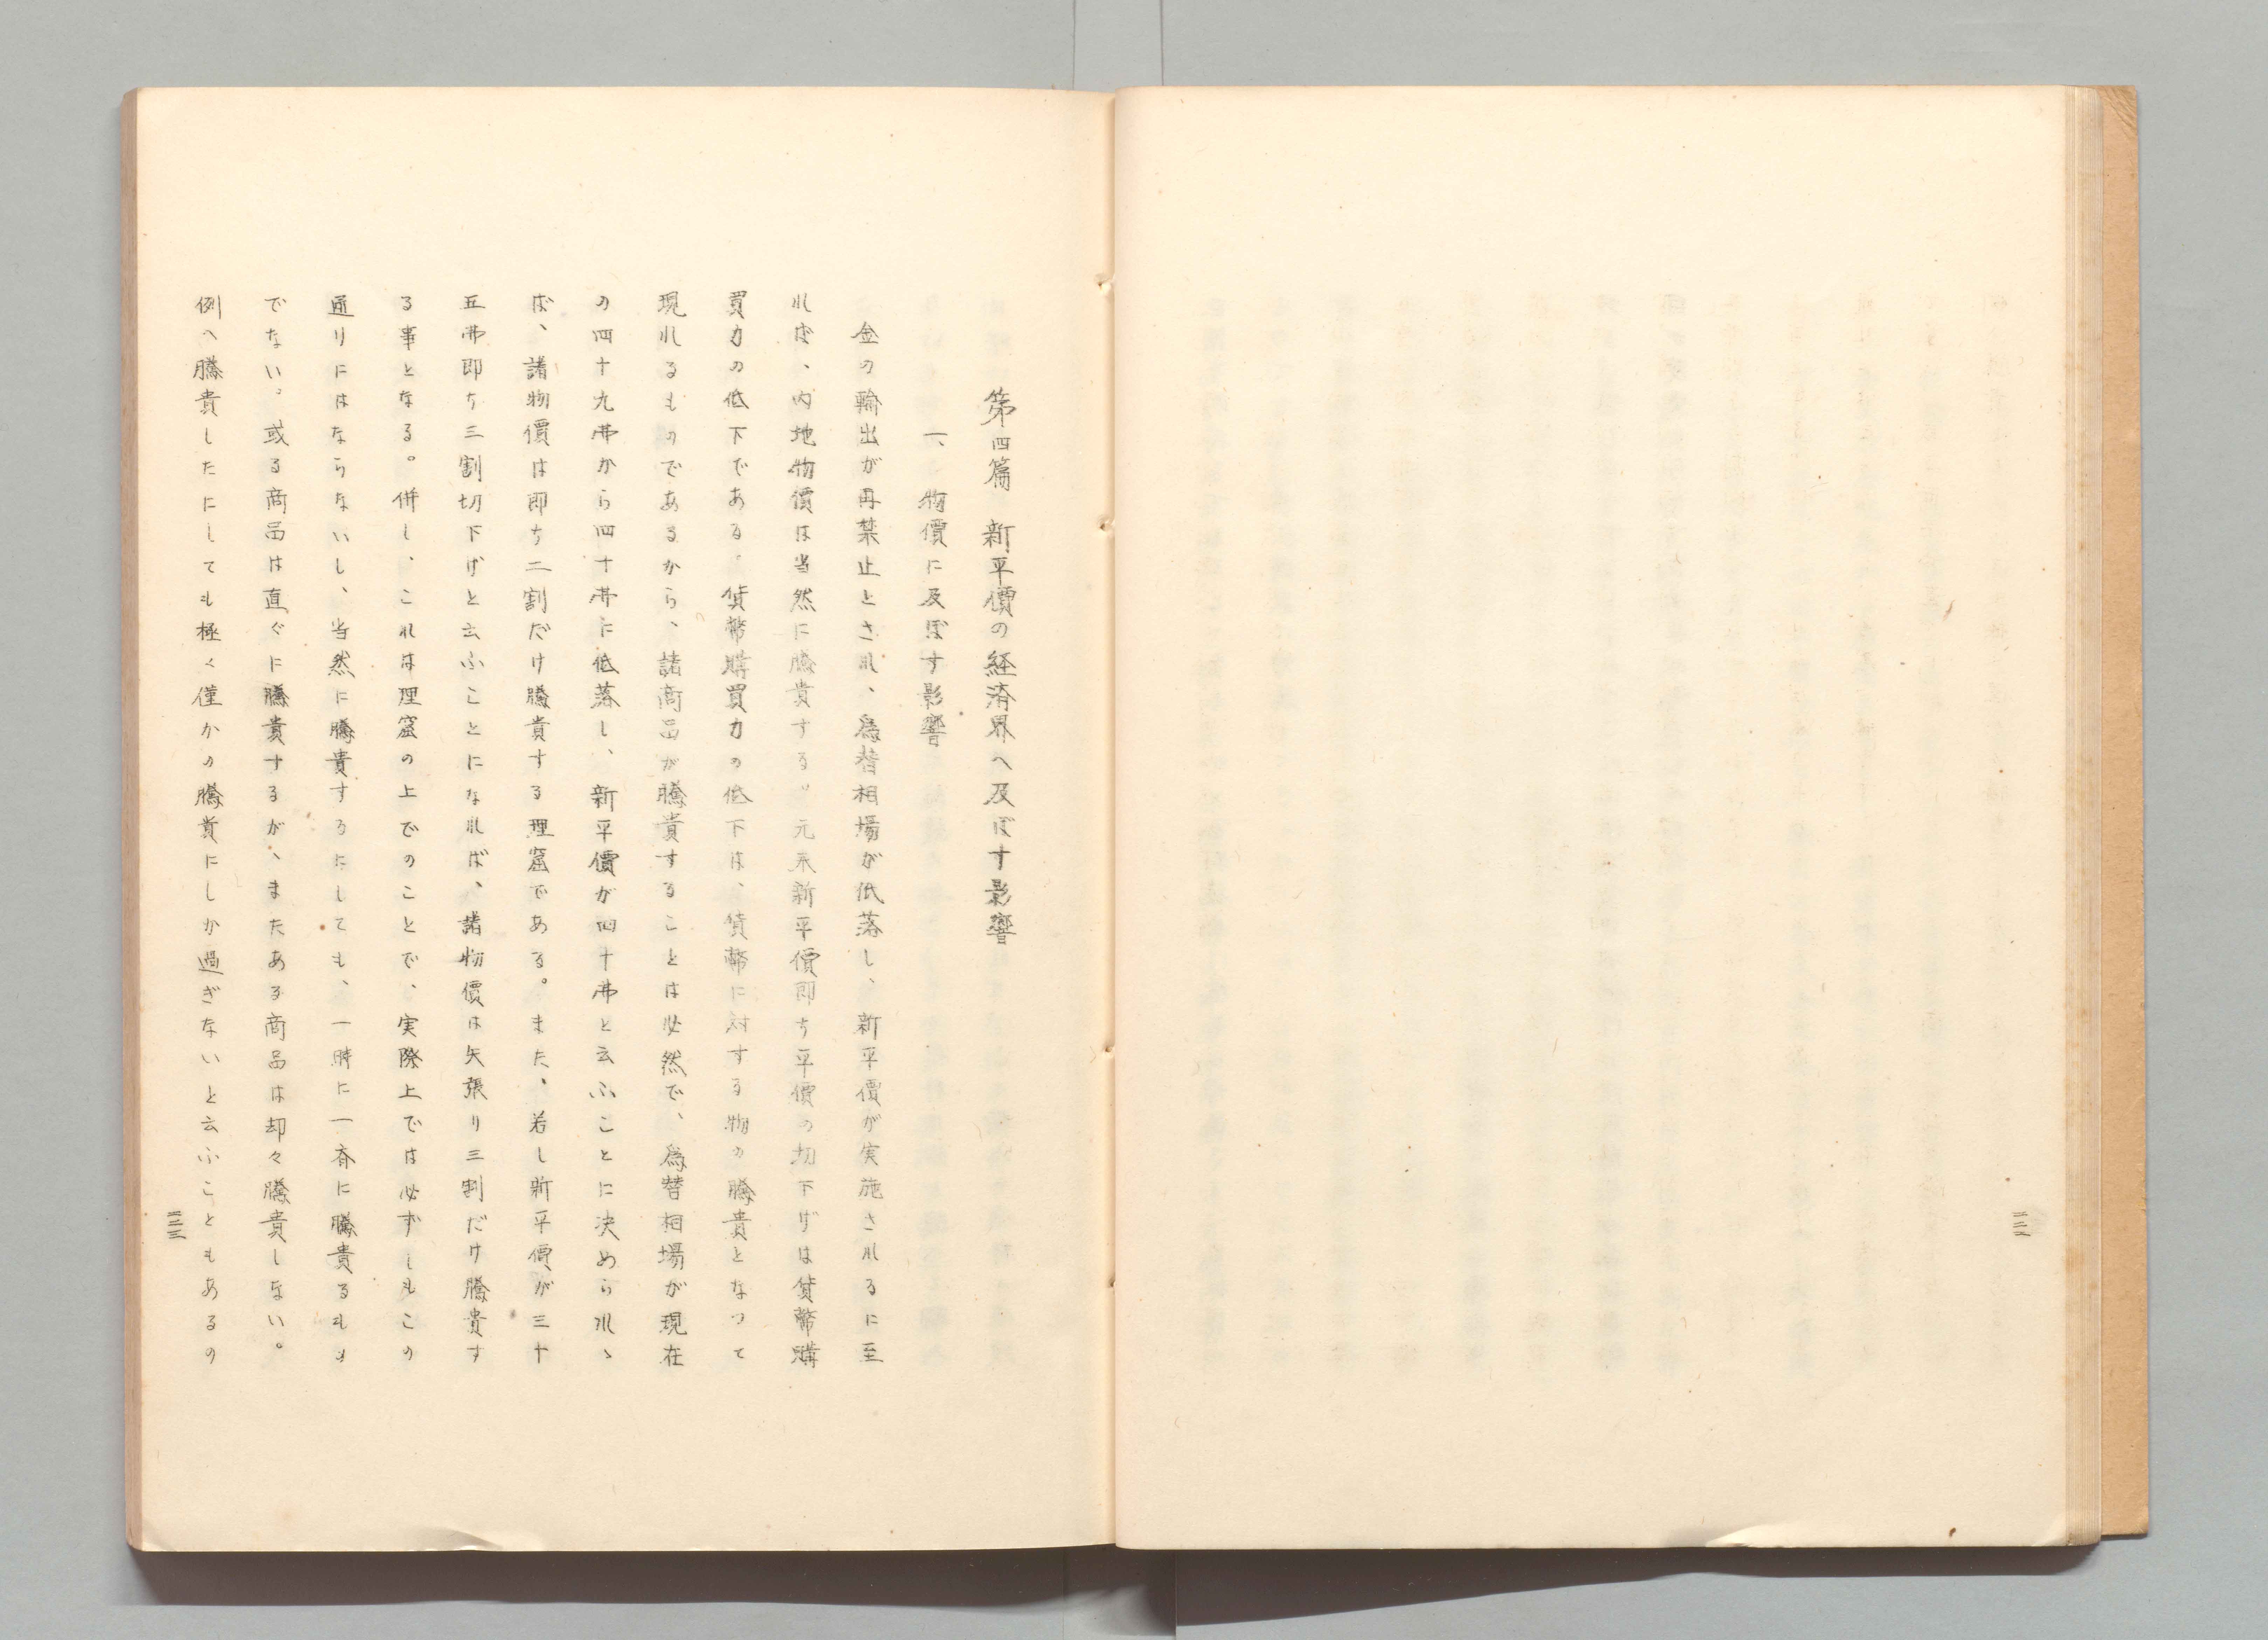 二二
第四篇　新平價の経済界へ及ぼす影響
一、物價に及ぼす影響
金の輸出が再禁止とされ、為替相場が低落し、新平價が実施されるに至
れば、内地物價は当然に騰貴する。元来新平價即ち平價の切下げは貨幣購
買力の低下である。貨幣購買力の低下は、貨幣に対する物の騰貴となつて
現れるものであるから、諸商品が騰貴することは必然で、為替相場が現在
の四十九弗から四十弗に低落し、新平價が四十弗と云ふことに決められゝ
ば、諸物價は即ち二割だけ騰貴する理窟である。また、若し新平價が三十
五弗即ち三割切下げと云ふことになれば、諸物價は矢張り三割だけ騰貴す
る事となる。併し、これは理窟の上でのことで、実際上では必ずしもこの
通りにはならないし、当然に騰貴するにしても、一時に一斉に騰貴るもの
でない。或る商品は直ぐに騰貴するが、またある商品は却々騰貴しない。
例へ騰貴したにしても極く僅かの騰貴にしか過ぎないと云ふこともあるの
二三